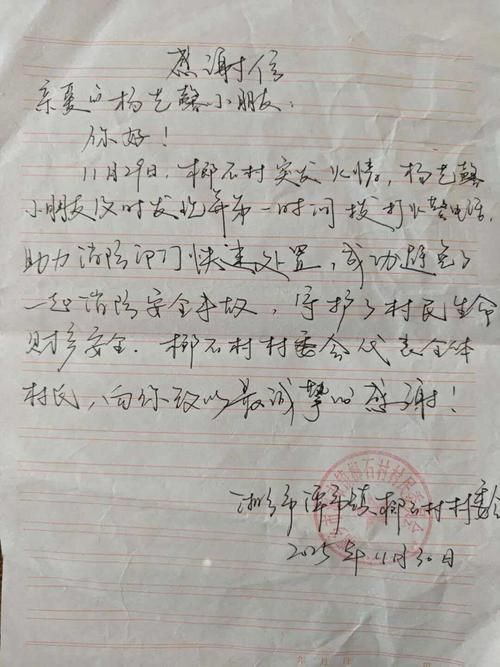 感谢信
亲爱的杨艺馨小朋友：
你好！
11月29日，柳石村突发火情。杨艺馨
小朋友及时发现并第一时间拨打火警电话，
助力消防部门快速处置，成功避免了
一起消防安全事故，守护了村民生命
财产安全．柳石村村委会代表全体
村民，向你致以最诚挚的感谢！
湘乡市潭市镇柳石村村委会
2025年11月30日
年 月 日